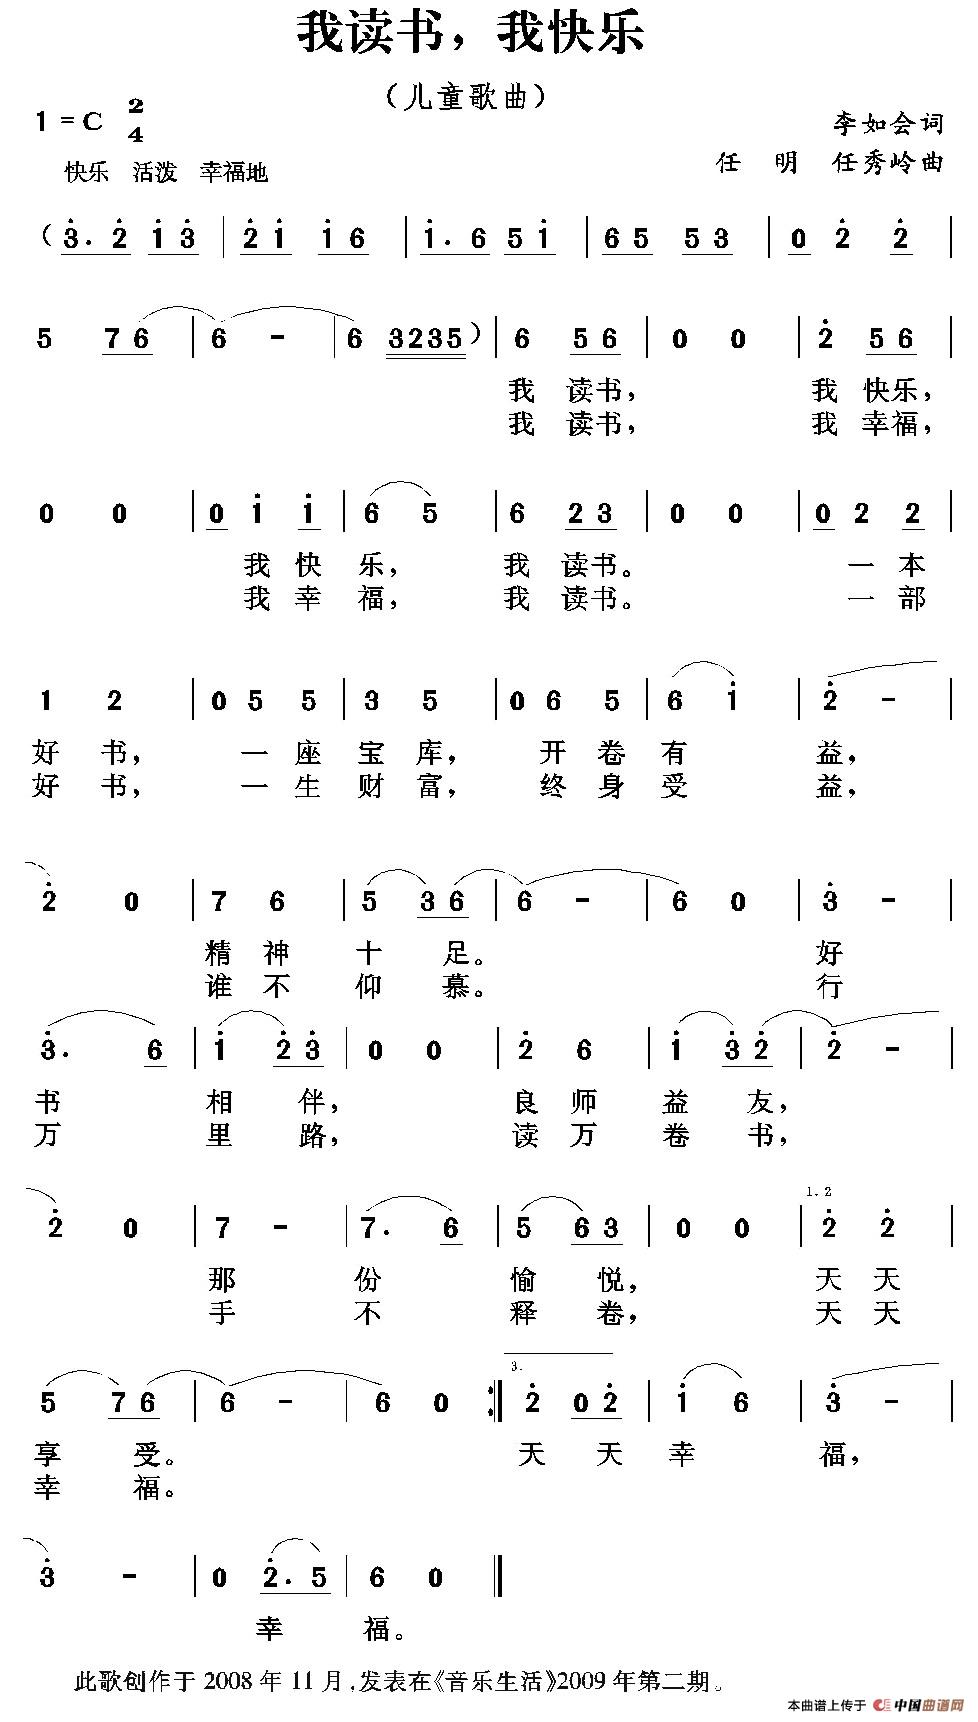 我读书，我快乐
（儿童歌曲）
1 = C 2/4
李如会词
快乐 活泼 幸福地
任 明 任秀岭曲
（3. 2 1 3 | 2 1 1 6 | 1. 6 5 1 | 6 5 5 3 | 0 2 2 |
5 7 6 | 6 - | 6 3235 ）| 6 5 6 | 0 0 | 2 5 6 |
我 读书， 我 快乐，
我 读书， 我 幸福，
0 0 | 0 1 1 | 6 5 | 6 2 3 | 0 0 | 0 2 2 |
我 快 乐， 我 读书。 一 本
我 幸 福， 我 读书。 一 部
1 2 | 0 5 5 | 3 5 | 0 6 5 | 6 1 | 2 - |
好 书， 一 座 宝 库， 开 卷 有 益，
好 书， 一 生 财 富， 终 身 受 益，
2 0 | 7 6 | 5 3 6 | 6 - | 6 0 | 3 - |
精 神 十 足。 好
谁 不 仰 慕。 行
3. 6 | 1 2 3 | 0 0 | 2 6 | 1 3 2 | 2 - |
书 相 伴， 良 师 益 友，
万 里 路， 读 万 卷 书，
1. 2
2 0 | 7 - | 7. 6 | 5 6 3 | 0 0 | 2 2 |
那 份 愉 悦， 天 天
手 不 释 卷， 天 天
3.
5 7 6 | 6 - | 6 0 :| 2 0 2 | 1 6 | 3 - |
享 受。 天 天 幸 福，
幸 福。
3 - | 0 2. 5 | 6 0 ‖
幸 福。
此歌创作于 2008 年 11 月，发表在《音乐生活》2009 年第二期。
本曲谱上传于 中国曲谱网